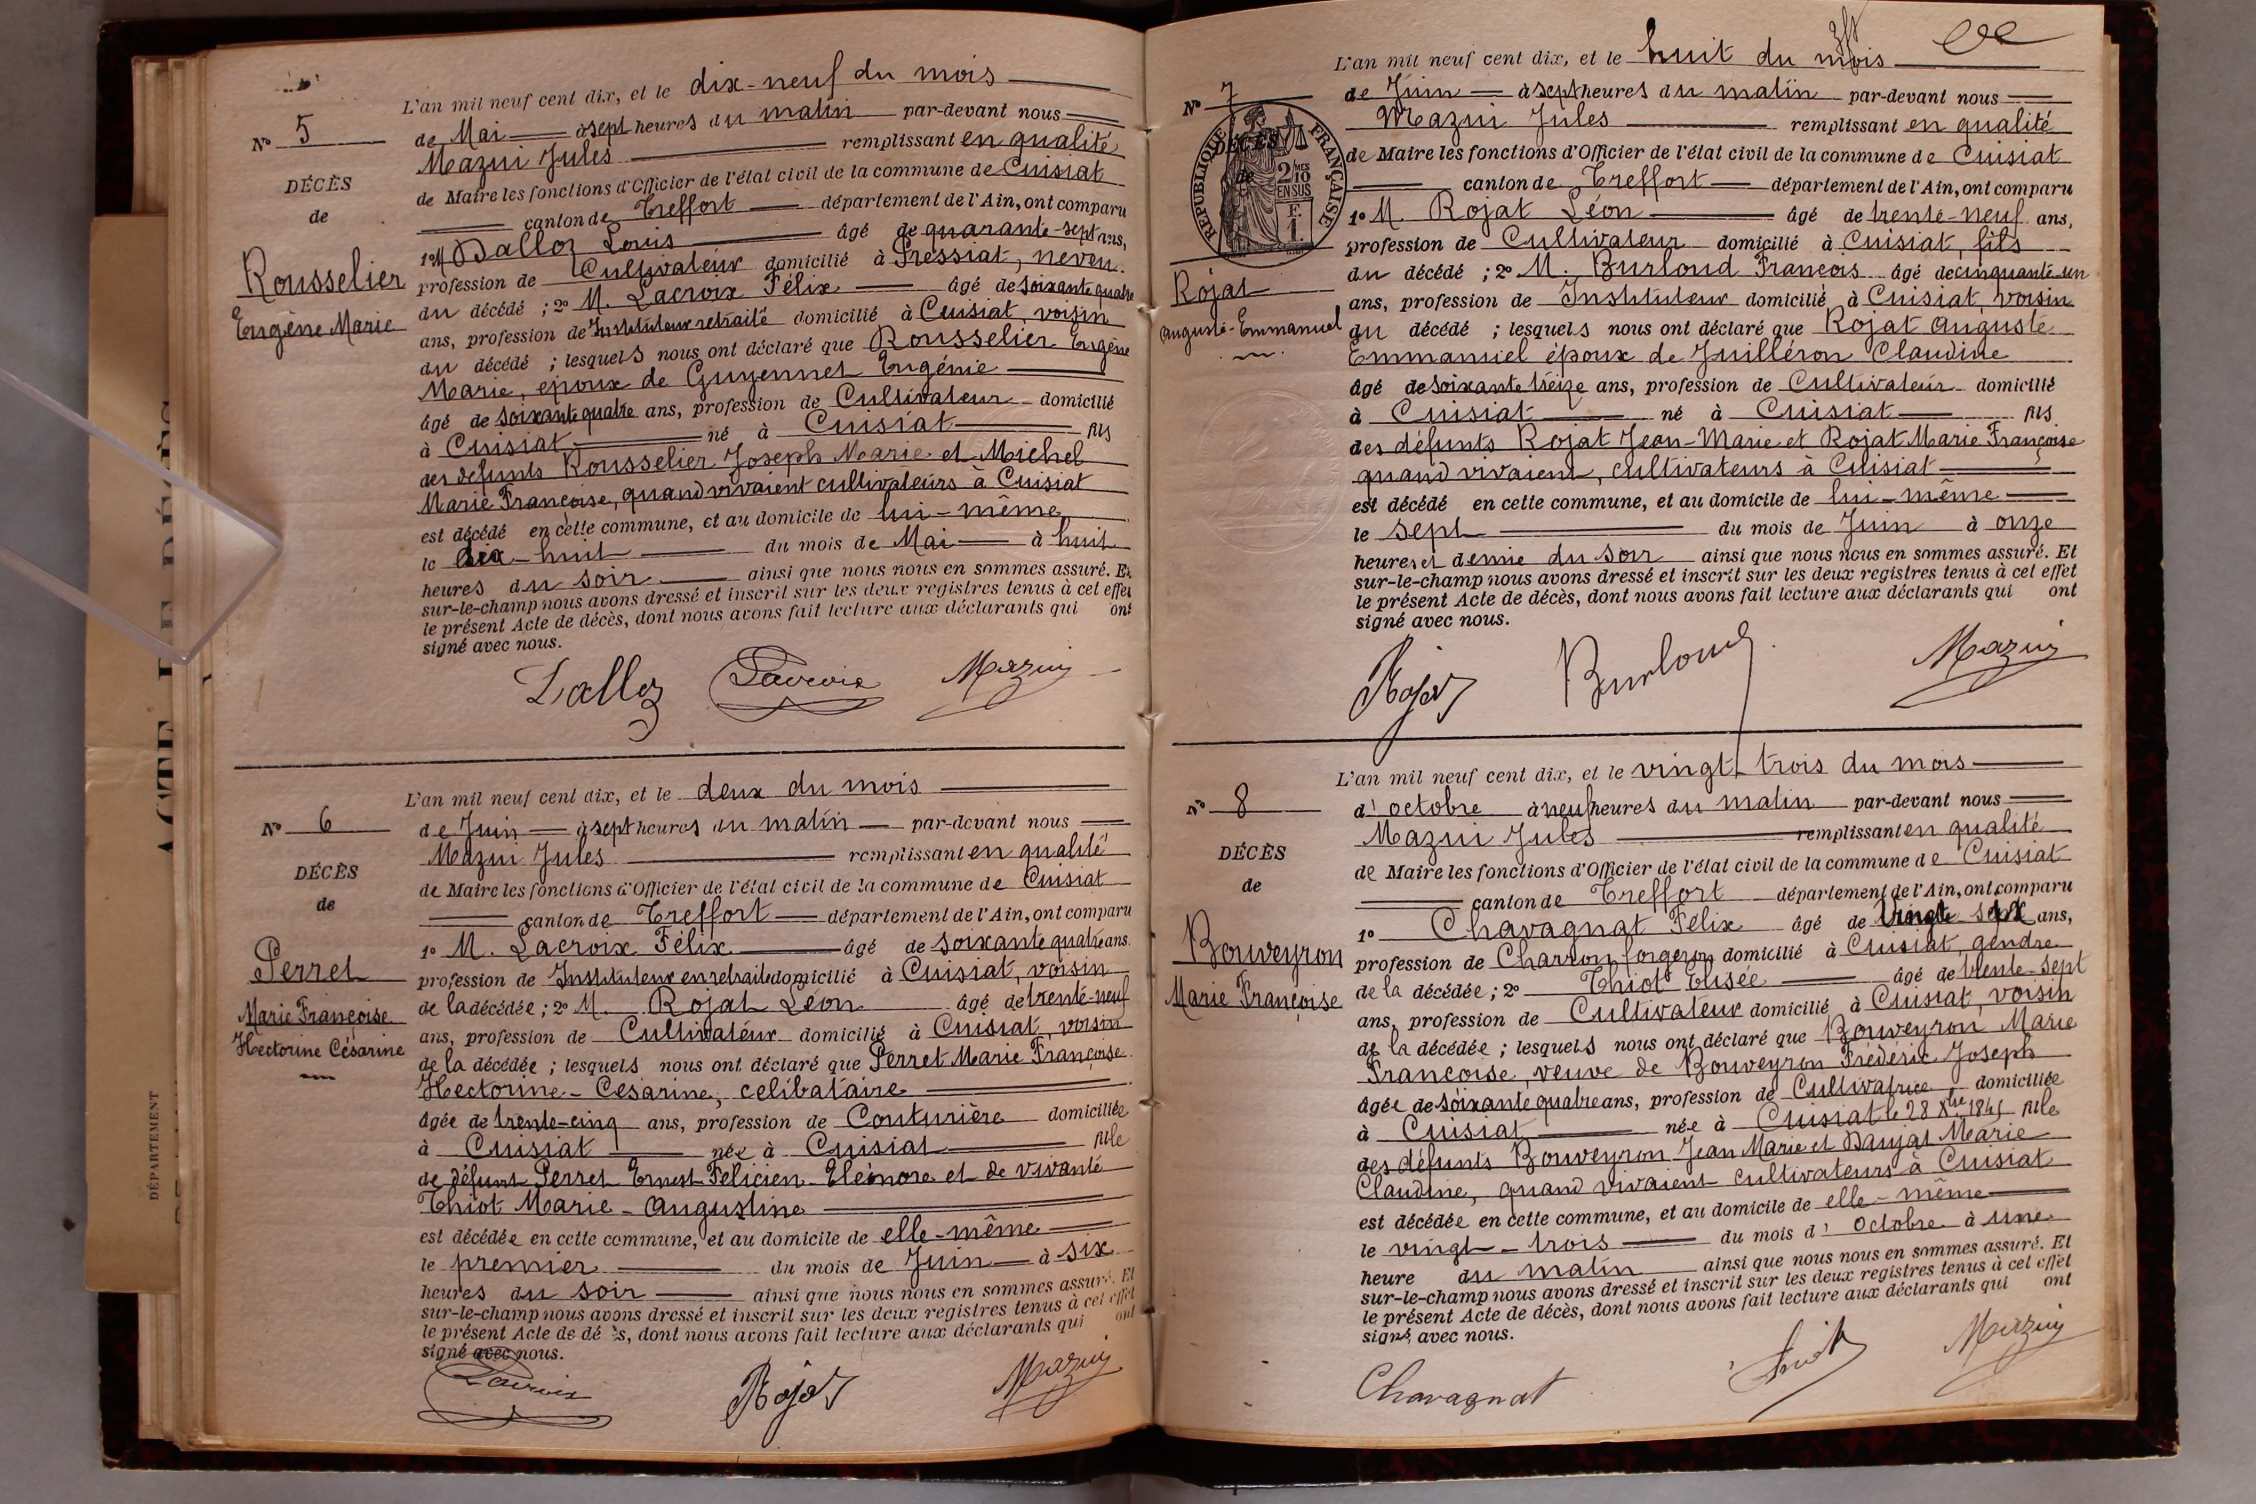 L'an mil neuf cent dix, et le dix-neuf du mois
N° 5
de Mai à sept heures du matin par-devant nous
Mazui Jules remplissant en qualité
DÉCÈS
de Maire les fonctions d'Officier de l'état civil de la commune de Cuisiat
de
canton de Treffort département de l'Ain, ont comparu
1° M Dalloz Louis âgé de quarante-sept ans,
Rousselier
profession de Cultivateur domicilié à Pressiat, neveu
du décédé ; 2° M. Lacroix Félix âgé de soixante quatre
Eugène Marie
ans, profession de Instituteur retraité domicilié à Cuisiat, voisin
du décédé ; lesquels nous ont déclaré que Rousselier Eugène
Marie, époux de Guyennet Eugénie
âgé de soixante quatre ans, profession de Cultivateur domicilié
à Cuisiat né à Cuisiat fils
des défunts Rousselier Joseph Marie et Michel
Marie Françoise, quand vivaient cultivateurs à Cuisiat
est décédé en cette commune, et au domicile de lui-même
le dix-huit du mois de Mai à huit
heures du soir ainsi que nous nous en sommes assuré. Et
sur-le-champ nous avons dressé et inscrit sur les deux registres tenus à cet effet
le présent Acte de décès, dont nous avons fait lecture aux déclarants qui ont
signé avec nous.
Dalloz Lacroix Mazui
L'an mil neuf cent dix, et le deux du mois
N° 6
de Juin à sept heures du matin par-devant nous
Mazui Jules remplissant en qualité
DÉCÈS
de Maire les fonctions d'Officier de l'état civil de la commune de Cuisiat
de
canton de Treffort département de l'Ain, ont comparu
1° M. Lacroix Félix âgé de soixante quatre ans.
Perret
profession de Instituteur en retraite domicilié à Cuisiat, voisin
de la décédée ; 2° M. Rojat Léon âgé de trente-neuf
Marie Françoise
ans, profession de Cultivateur domicilié à Cuisiat, voisin
Hectorine Césarine
de la décédée ; lesquels nous ont déclaré que Perret Marie Françoise
Hectorine-Césarine, célibataire
âgée de trente-cinq ans, profession de Couturière domiciliée
à Cuisiat née à Cuisiat fille
de défunt Perret Ernest Félicien Eléonore et de vivante
Thiot Marie-Augustine
est décédée en cette commune, et au domicile de elle-même
le premier du mois de Juin à six
heures du soir ainsi que nous nous en sommes assuré. Et
sur-le-champ nous avons dressé et inscrit sur les deux registres tenus à cet effet
le présent Acte de dé s, dont nous avons fait lecture aux déclarants qui ont
signé avec nous.
Lacroix Rojat Mazui
DÉPARTEMENT
L'an mil neuf cent dix, et le huit du mois
N° 7
de Juin à sept heures du matin par-devant nous
Mazui Jules remplissant en qualité
DÉCÈS
de Maire les fonctions d'Officier de l'état civil de la commune de Cuisiat
de
RÉPUBLIQUE FRANÇAISE
2/10 EN SUS
F. 1.
canton de Treffort département de l'Ain, ont comparu
1° M. Rojat Léon âgé de trente-neuf ans,
profession de Cultivateur domicilié à Cuisiat, fils
du décédé ; 2° M. Burloud François âgé de cinquante-un
Rojat
ans, profession de Instituteur domicilié à Cuisiat, voisin
Auguste-Emmanuel
du décédé ; lesquels nous ont déclaré que Rojat Auguste
Emmanuel époux de Juilléron Claudine
âgé de soixante treize ans, profession de Cultivateur domicilié
à Cuisiat né à Cuisiat fils
des défunts Rojat Jean-Marie et Rojat Marie Françoise
quand vivaient, cultivateurs à Cuisiat
est décédé en cette commune, et au domicile de lui-même
le sept du mois de Juin à onze
heures et demie du soir ainsi que nous nous en sommes assuré. Et
sur-le-champ nous avons dressé et inscrit sur les deux registres tenus à cet effet
le présent Acte de décès, dont nous avons fait lecture aux déclarants qui ont
signé avec nous.
Rojat Burloud Mazui
L'an mil neuf cent dix, et le vingt-trois du mois
N° 8
d'octobre à neuf heures du matin par-devant nous
Mazui Jules remplissant en qualité
DÉCÈS
de Maire les fonctions d'Officier de l'état civil de la commune de Cuisiat
de
canton de Treffort département de l'Ain, ont comparu
1° Chavagnat Félix âgé de vingt sept ans,
Bouveyron
profession de Charron forgeron domicilié à Cuisiat, gendre
Marie Françoise
de la décédée ; 2° Thiot Elisée âgé de trente-sept
ans, profession de Cultivateur domicilié à Cuisiat, voisin
de la décédée ; lesquels nous ont déclaré que Bouveyron Marie
Françoise, veuve de Bouveyron Frédéric Joseph
âgée de soixante quatre ans, profession de Cultivatrice domiciliée
à Cuisiat née à Cuisiat le 28 Xbre 1845 fille
des défunts Bouveyron Jean Marie et Danjat Marie
Claudine, quand vivaient cultivateurs à Cuisiat
est décédée en cette commune, et au domicile de elle-même
le vingt-trois du mois d'Octobre à une
heure du matin ainsi que nous nous en sommes assuré. Et
sur-le-champ nous avons dressé et inscrit sur les deux registres tenus à cet effet
le présent Acte de décès, dont nous avons fait lecture aux déclarants qui ont
signé avec nous.
Chavagnat Thiot Mazui